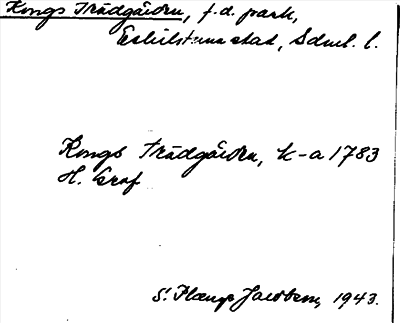 Kongs Trädgården, f.d. park,
Eskilstuna stad, Sdml. l.
Kongs trädgården, k-a 1783
H. Graf
S. Jacobsen, 1943.